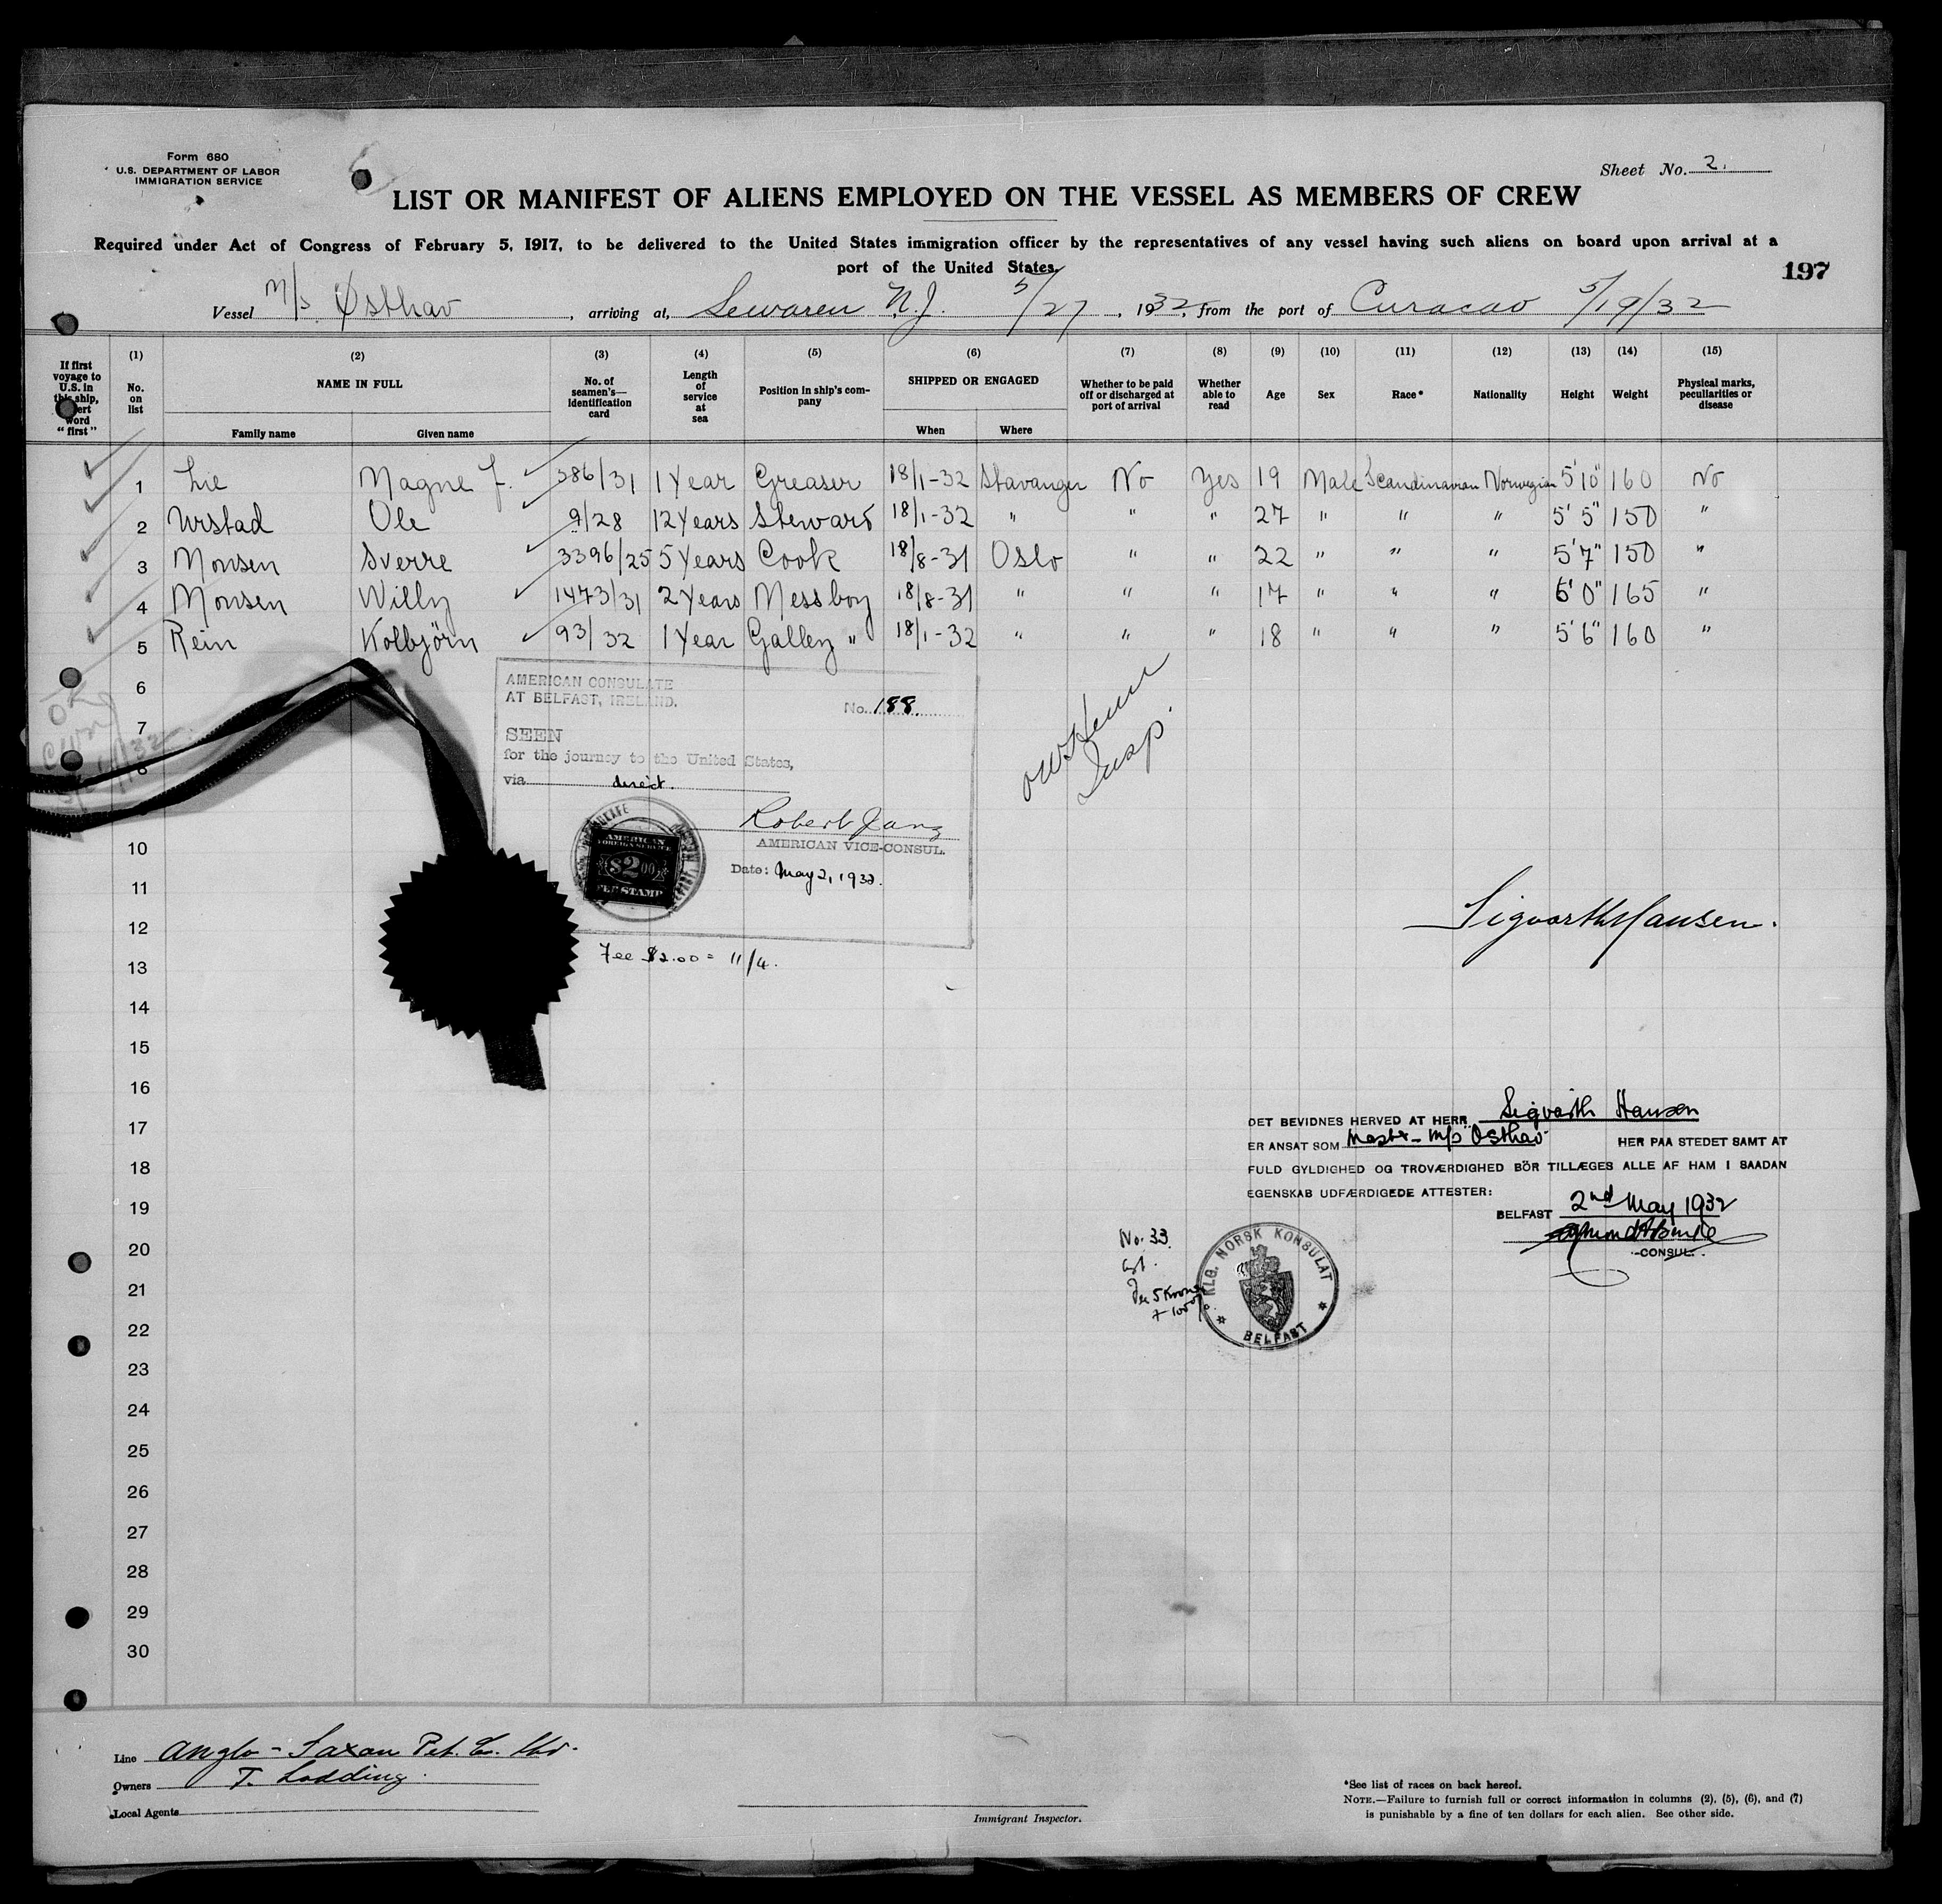 Form 680
U.S. DEPARTMENT OF LABOR
IMMIGRATION SERVICE
Sheet No. 2.
LIST OR MANIFEST OF ALIENS EMPLOYED ON THE VESSEL AS MEMBERS OF CREW
Required under Act of Congress of February 5, 1917, to be delivered to the United States immigration officer by the representatives of any vessel having such aliens on board upon arrival at a
port of the United States.
197
Vessel M/S Østhav, arriving at, Sewaren N.J. 5/27, 1932, from the port of Curacao 5/19/32
If first voyage to U.S. in this ship, insert word "first"
(1) No. on list
(2) NAME IN FULL
Family name
Given name
(3) No. of seamen's identification card
(4) Length of service at sea
(5) Position in ship's company
(6) SHIPPED OR ENGAGED
When
Where
(7) Whether to be paid off or discharged at port of arrival
(8) Whether able to read
(9) Age
(10) Sex
(11) Race*
(12) Nationality
(13) Height
(14) Weight
(15) Physical marks, peculiarities or disease
1 Lie Magne J. 386/31 1 Year Greaser 18/1-32 Stavanger No Yes 19 Male Scandinavian Norwegian 5'10" 160 No
2 Urstad Ole 9/28 12 Years Steward 18/1-32 " " " 27 " " " 5'5" 150 "
3 Monsen Sverre 3396/25 5 Years Cook 18/8-31 Oslo " " 22 " " " 5'7" 150 "
4 Monsen Willy 1473/31 2 Years Messboy 18/8-31 " " " 17 " " " 6'0" 165 "
5 Rein Kolbjörn 93/32 1 Year Galley " 18/1-32 " " " 18 " " " 5'6" 160 "
6
7
8
9
10
11
12
13
14
15
16
17
18
19
20
21
22
23
24
25
26
27
28
29
30
AMERICAN CONSULATE
AT BELFAST, IRELAND.
No. 188.
SEEN
for the journey to the United States,
via direct.
AMERICAN FOREIGN SERVICE
$2.00
FEE STAMP
Robert Janz
AMERICAN VICE-CONSUL.
Date: May 2, 1932.
Fee $2.00 = 11/4.
Insp.
Sigvarth Hansen.
DET BEVIDNES HERVED AT HERR Sigvarth Hansen
ER ANSAT SOM Master M/S Østhav HER PAA STEDET SAMT AT
FULD GYLDIGHED OG TROVÆRDIGHED BÖR TILLÆGES ALLE AF HAM I SAADAN
EGENSKAB UDFÆRDIGEDE ATTESTER:
BELFAST 2nd May 1932
CONSUL.
No. 33.
Fee 5 Kroner
+ 100%
KLG. NORSK KONSULAT
BELFAST
Line Anglo-Saxon Pet. Co. Ltd.
Owners T. Lodding.
Local Agents
Immigrant Inspector.
*See list of races on back hereof.
NOTE.—Failure to furnish full or correct information in columns (2), (5), (6), and (7)
is punishable by a fine of ten dollars for each alien. See other side.